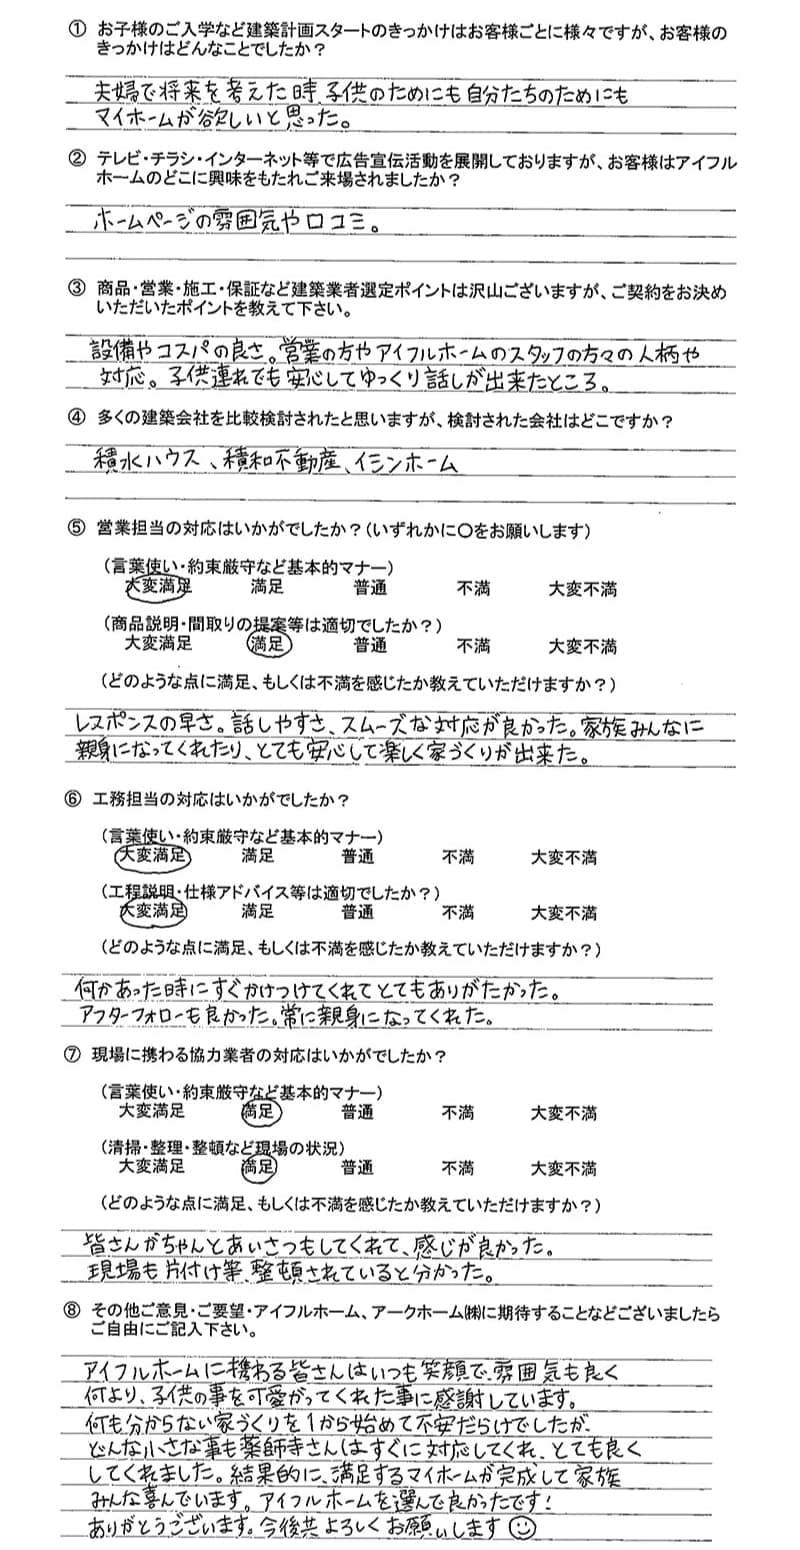 ① お子様のご入学など建築計画スタートのきっかけはお客様ごとに様々ですが、お客様の
きっかけはどんなことでしたか？
夫婦で将来を考えた時、子供のためにも自分たちのためにも
マイホームが欲しいと思った。
② テレビ・チラシ・インターネット等で広告宣伝活動を展開しておりますが、お客様はアイフル
ホームのどこに興味をもたれご来場されましたか？
ホームページの雰囲気や口コミ。
③ 商品・営業・施工・保証など建築業者選定ポイントは沢山ございますが、ご契約をお決め
いただいたポイントを教えて下さい。
設備やコスパの良さ。営業の方やアイフルホームのスタッフの方々の人柄や
対応。子供連れでも安心してゆっくり話しが出来たところ。
④ 多くの建築会社を比較検討されたと思いますが、検討された会社はどこですか？
積水ハウス、積和不動産、イシンホーム
⑤ 営業担当の対応はいかがでしたか？（いずれかに〇をお願いします）
（言葉使い・約束厳守など基本的マナー）
大変満足 満足 普通 不満 大変不満
（商品説明・間取りの提案等は適切でしたか？）
大変満足 満足 普通 不満 大変不満
（どのような点に満足、もしくは不満を感じたか教えていただけますか？）
レスポンスの早さ。話しやすさ、スムーズな対応が良かった。家族みんなに
親身になってくれたり、とても安心して楽しく家づくりが出来た。
⑥ 工務担当の対応はいかがでしたか？
（言葉使い・約束厳守など基本的マナー）
大変満足 満足 普通 不満 大変不満
（工程説明・仕様アドバイス等は適切でしたか？）
大変満足 満足 普通 不満 大変不満
（どのような点に満足、もしくは不満を感じたか教えていただけますか？）
何かあった時にすぐかけつけてくれてとてもありがたかった。
アフターフォローも良かった。常に親身になってくれた。
⑦ 現場に携わる協力業者の対応はいかがでしたか？
（言葉使い・約束厳守など基本的マナー）
大変満足 満足 普通 不満 大変不満
（清掃・整理・整頓など現場の状況）
大変満足 満足 普通 不満 大変不満
（どのような点に満足、もしくは不満を感じたか教えていただけますか？）
皆さんがちゃんとあいさつもしてくれて、感じが良かった。
現場も片付け等、整頓されていると分かった。
⑧ その他ご意見・ご要望・アイフルホーム、アークホーム㈱に期待することなどございましたら
ご自由にご記入下さい。
アイフルホームに携わる皆さんはいつも笑顔で、雰囲気も良く
何より、子供の事を可愛がってくれた事に感謝しています。
何も分からない家づくりを1から始めて不安だらけでしたが、
どんな小さな事も薬師寺さんはすぐに対応してくれ、とても良く
してくれました。結果的に、満足するマイホームが完成して家族
みんな喜んでいます。アイフルホームを選んで良かったです！
ありがとうございます。今後共よろしくお願いします☺